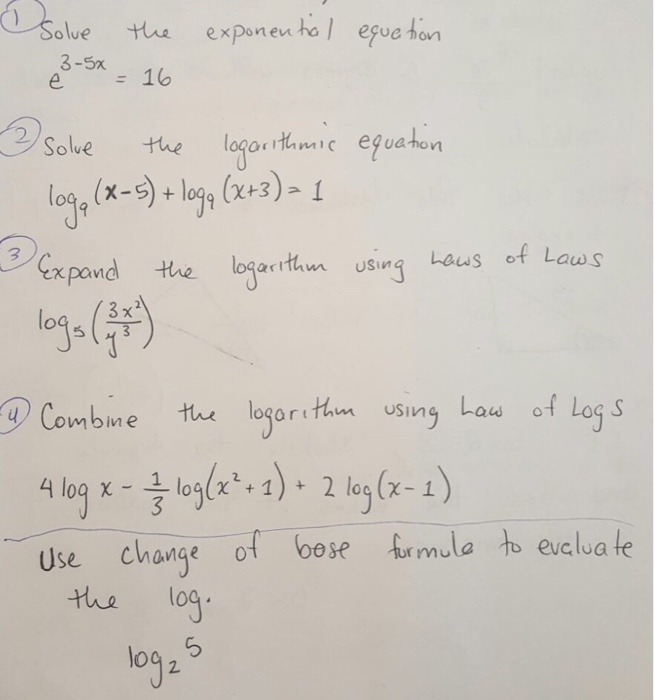 ① Solve the exponential equation
e^{3-5x} = 16
② Solve the logarithmic equation
log₉ (x-5) + log₉ (x+3) = 1
③ Expand the logarithm using Laws of Laws
log₅ (3x²/y³)
④ Combine the logarithm using Law of Logs
4 log x - 1/3 log(x² + 1) + 2 log(x-1)
Use change of base formula to evaluate
the log.
log₂ 5